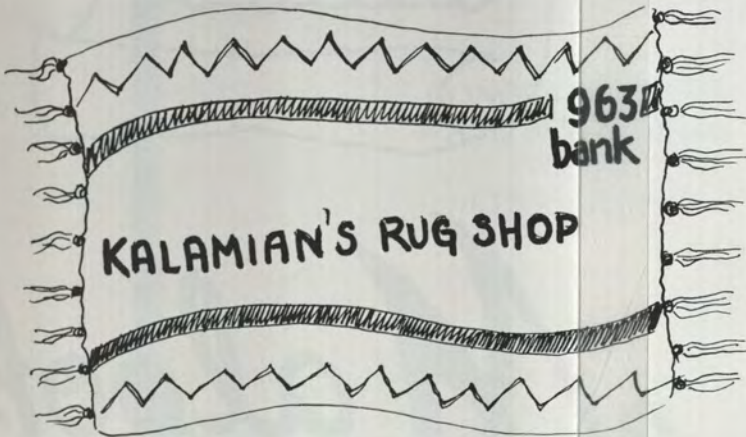 963
bank
KALAMIAN'S RUG SHOP